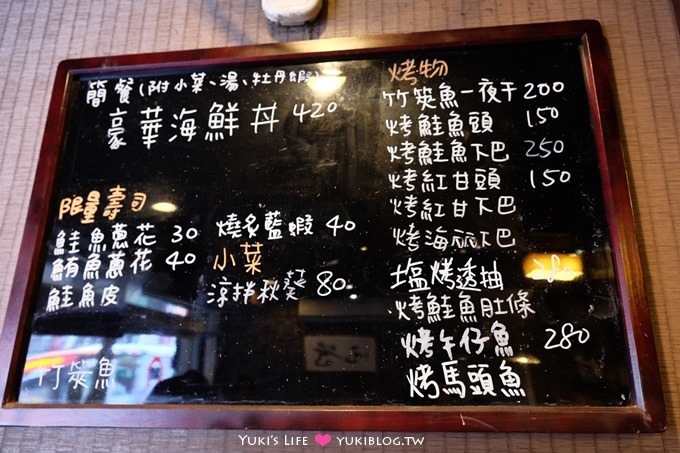 簡餐(附小菜、湯、牡丹蝦)
豪華海鮮丼 420
限量壽司
鮭魚蔥花 30
鮪魚蔥花 40
鮭魚皮
竹筴魚
燒炙藍蝦 40
小菜
涼拌秋葵 80
烤物
竹筴魚一夜干 200
烤鮭魚頭 150
烤鮭魚下巴 250
烤紅甘頭 150
烤紅甘下巴
烤海麗下巴
塩烤透抽 180
烤鮭魚肚條
烤午仔魚 280
烤馬頭魚
YUKI'S LIFE ❤ YUKIBLOG.TW